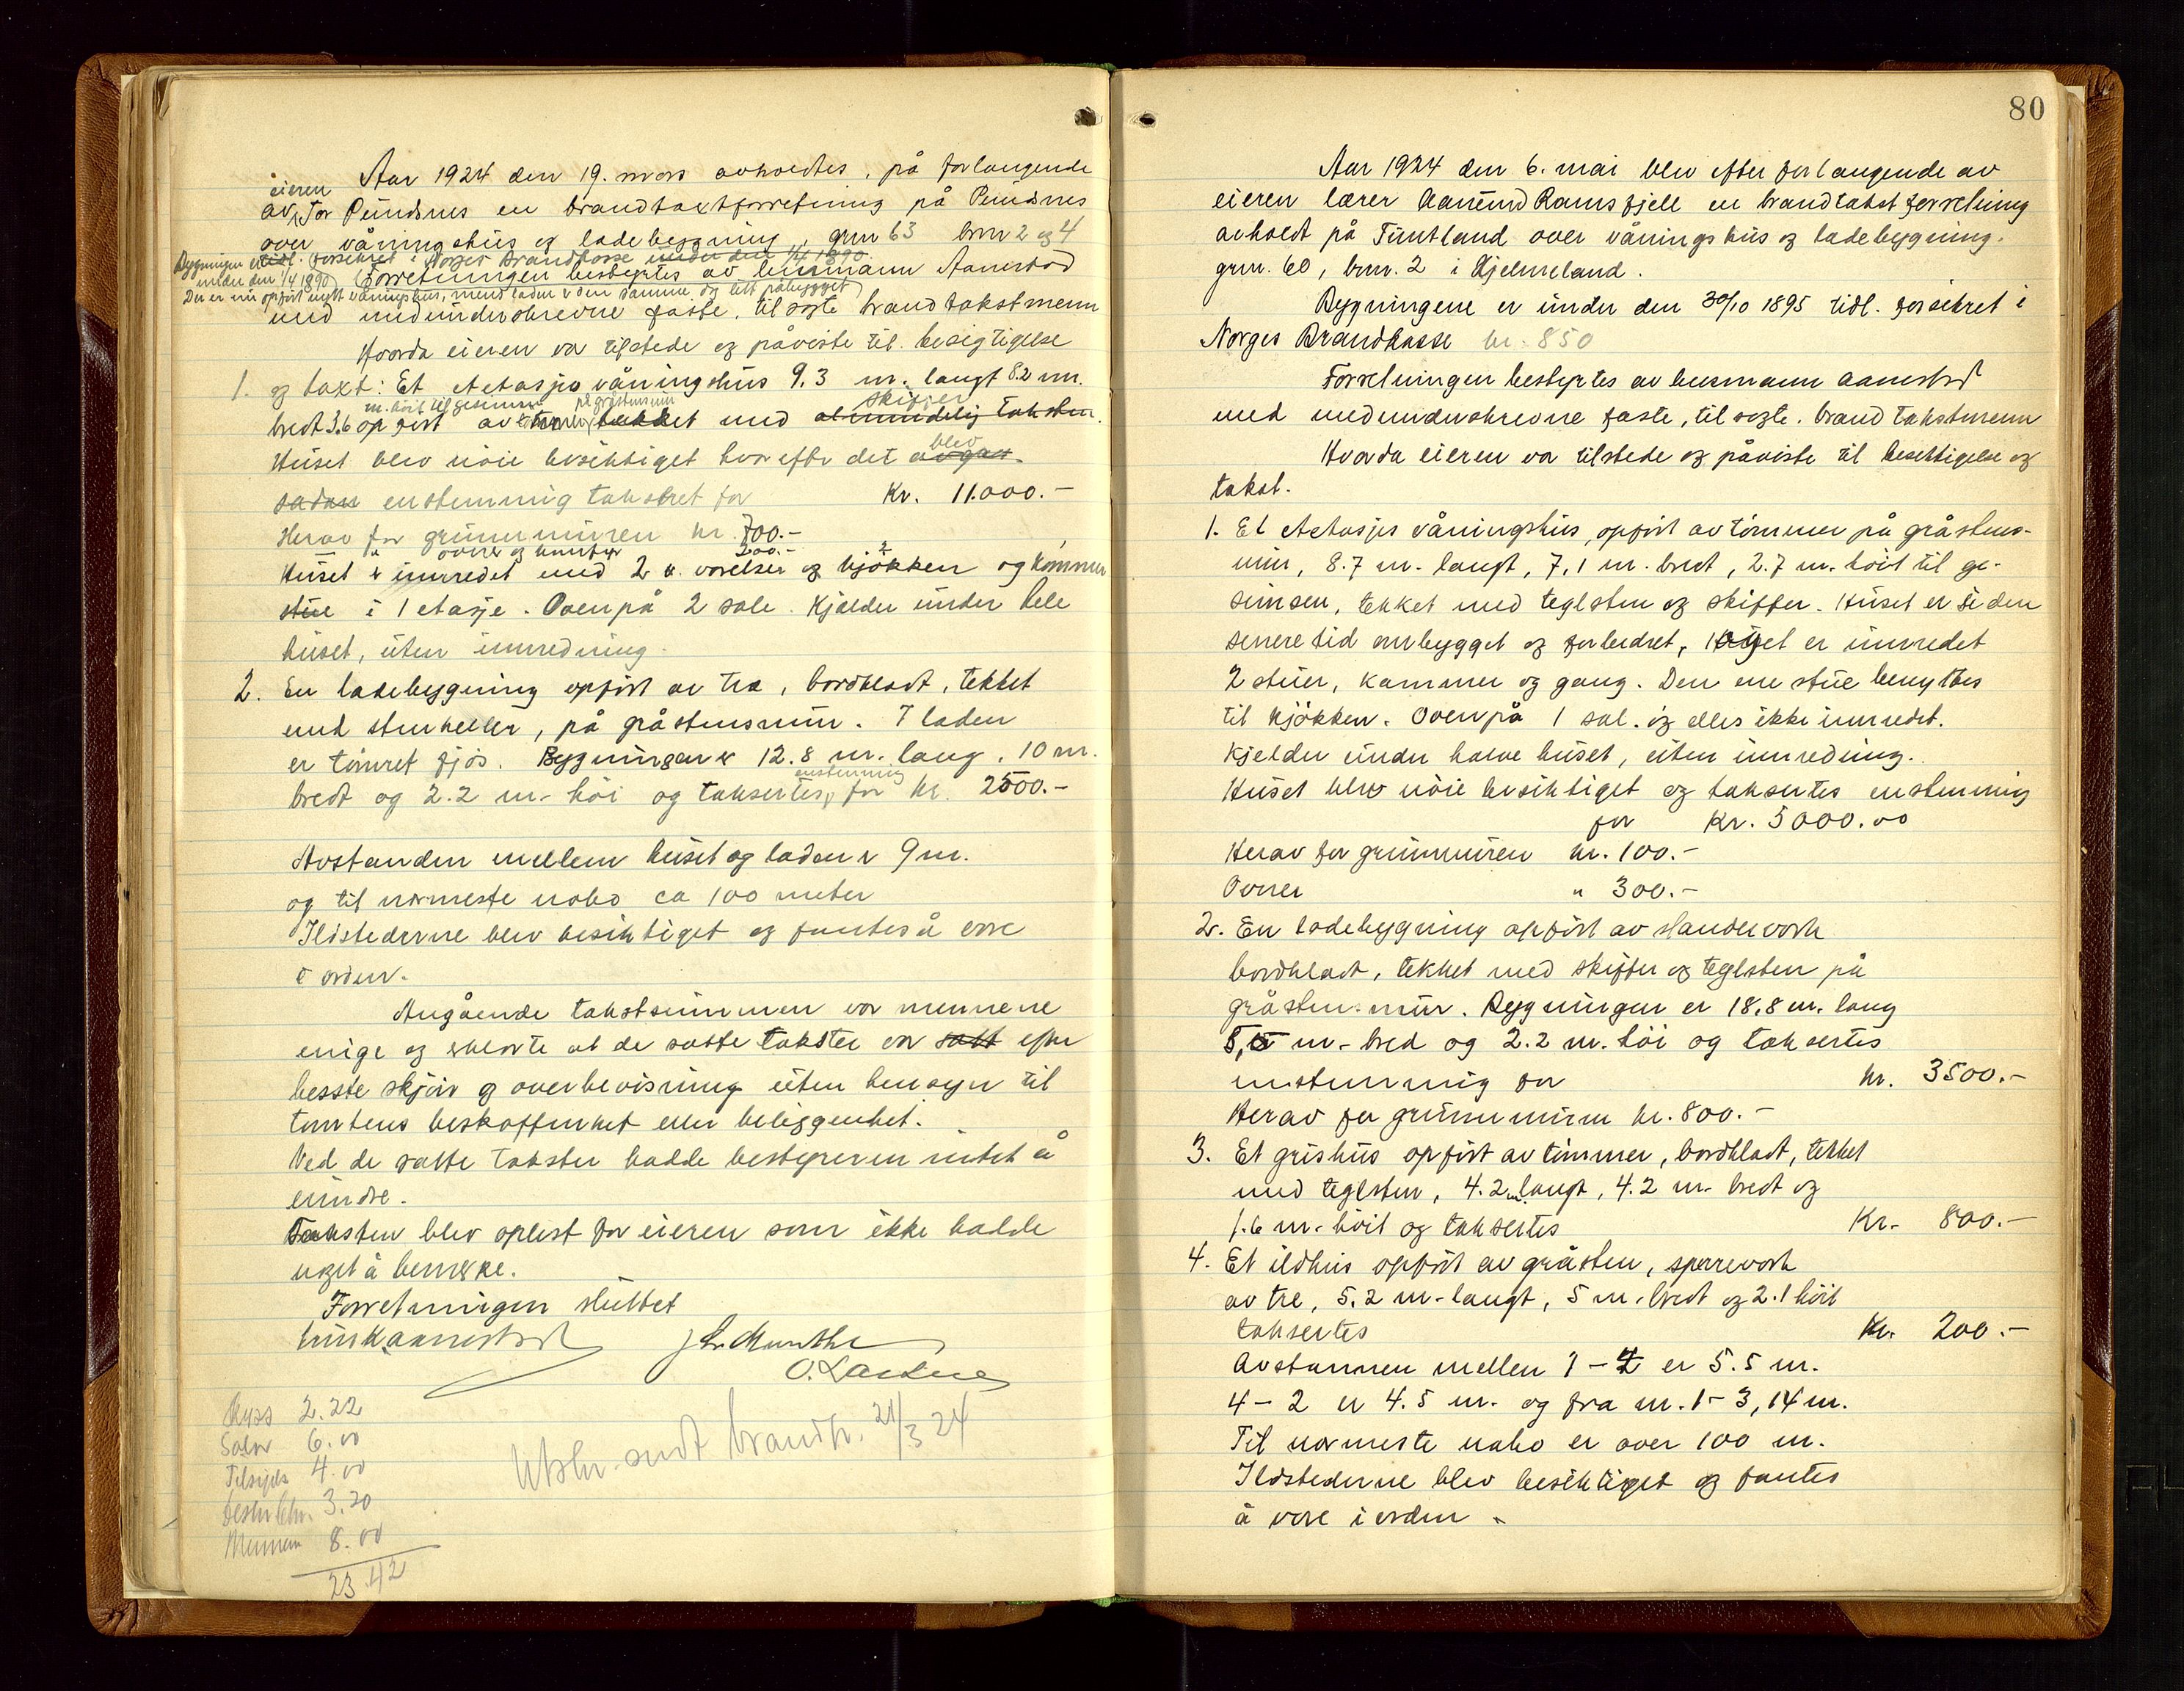 Aar 1924 den 19. mars avholdtes, på forlangende
eieren
av Tor Pundsnes en brandtaxtforretning på Pundsnes
over våningshus og ladebygning, grnr 63 brnr 2 og 4
Bygningen er tidl. forsikret i Norges Brandkasse under den 1/4 1890.
under den 1/4 1890 (Forretningen bestyrtes av lensmann Aanestad
Der er nu opført nytt våningshus, mens laden er den samme og litt påbygget)
med medunderskrevne faste, til sagte brandtakstmenn
Hvorda eieren var tilstede og påviste til besigtigelse
1. og taxt: Et etetasjes våningshus 9.3 m. langt 8.2 m.
m. høit til gesimsen på gråstensmur skiffer
bredt 3.6 opført av tømmer, tekket med almindelig taksten.
Huset blev nøie besiktiget hvorefter det blev avgas
sådan enstemmig taksert for Kr. 11.000.-
Herav for grunnmuren kr. 700.-
" ovner og komfyr 200.-
Huset er innredet med 2 værelser og 2 kjøkken og kammer
stue i 1 etasje. Ovenpå 2 sale. Kjelder under hele
huset, uten innredning.
2. En ladebygning opført av tre, bordkledt, tekket
med stenheller, på gråstensmur. I laden
er tømret fjøs. Bygningen er 12.8 m. lang. 10 m.
bredt og 2.2 m. høi og taksertes enstemmig for kr. 2500.-
Avstanden mellem huset og laden er 9 m.
og til nærmeste nabo ca 100 meter
Ildstederne blev besiktiget og funtes å være
i orden.
Angående takstsummen var mennene
enige og erklærte at de satte takster er satt efter
besste skjøn og overbevisning uten hensyn til
tomtens beskaffenhet eller beliggenhet.
Ved de satte takster hadde bestyreren intet å
erindre.
Taksten blev oplest for eieren som ikke hadde
noget å bemerke.
Forretningen sluttet
Henrik Aanestad J. Chr. Munthe
O. Laudne
Skyss 2.22
Salær 6.00
Tilsigels 4.00
Beskr.bhr. 3.20
Mennene 8.00
23.42
Utskr. sendt brandk. 21/3 24
80
Aar 1924 den 6. mai blev efter forlangende av
eieren lærer Aanund Ramsfjell en brandtakst forretning
avholdt på Tuntland over våningshus og ladebygning.
grnr. 60, brnr. 2 i Hjelmeland.
Bygningene er under den 30/10 1895 tidl. forsikret i
Norges Brandkasse kr. 850
Forretningen bestyrtes av lensmann Aanestad
med medunderskrevne faste, til sagte. brand takstmenn
Hvorda eieren var tilstede og påviste til besiktigelse og
takst.
1. Et etetasjes våningshus, opført av tømmer på gråstens-
mur, 8.7 m. langt, 7,1 m. bredt, 2.7 m. høit til ge-
simsen, tekket med teglsten og skiffer. Huset er i den
senere tid ombygget og forbedret, Huset er innredet
2 stuer, kammer og gang. Den ene stue benyttes
til kjøkken. Ovenpå 1 sal. og elles ikke innredet.
Kjelder under halve huset, uten innredning.
Huset blev nøie besiktiget og taksertes enstemmig
for Kr. 5000.00
Herav for grunnmuren kr. 100.-
Ovner " 300.-
2. En ladebygning opført av standerverk
bordkledt, tekket med skiffer og teglsten på
gråstensmur. Bygningen er 18.8 m. lang
m. bred og 2.2 m. høi og taksertes
enstemmig for kr. 3500.-
Herav for grunnmuren kr. 800.-
3. Et grishus opført av tømmer, bordkledt, tekket
med teglsten, 4.2 m. langt, 4.2 m. bredt og
1.6 m. høit og taksertes Kr. 800.-
4. Et ildhus opført av gråsten, sperreverk
av tre, 5.2 m. langt, 5 m. bredt og 2.1 høit
taksertes Kr. 200.-
Avstannen mellen 1 - 4 er 5.5 m.
4 - 2 er 4.5 m. og fra nr. 1 - 3, 14 m.
Til nærmeste nabo er over 100 m.
Ildstederne blev besiktiget og funtes
å være i orden.